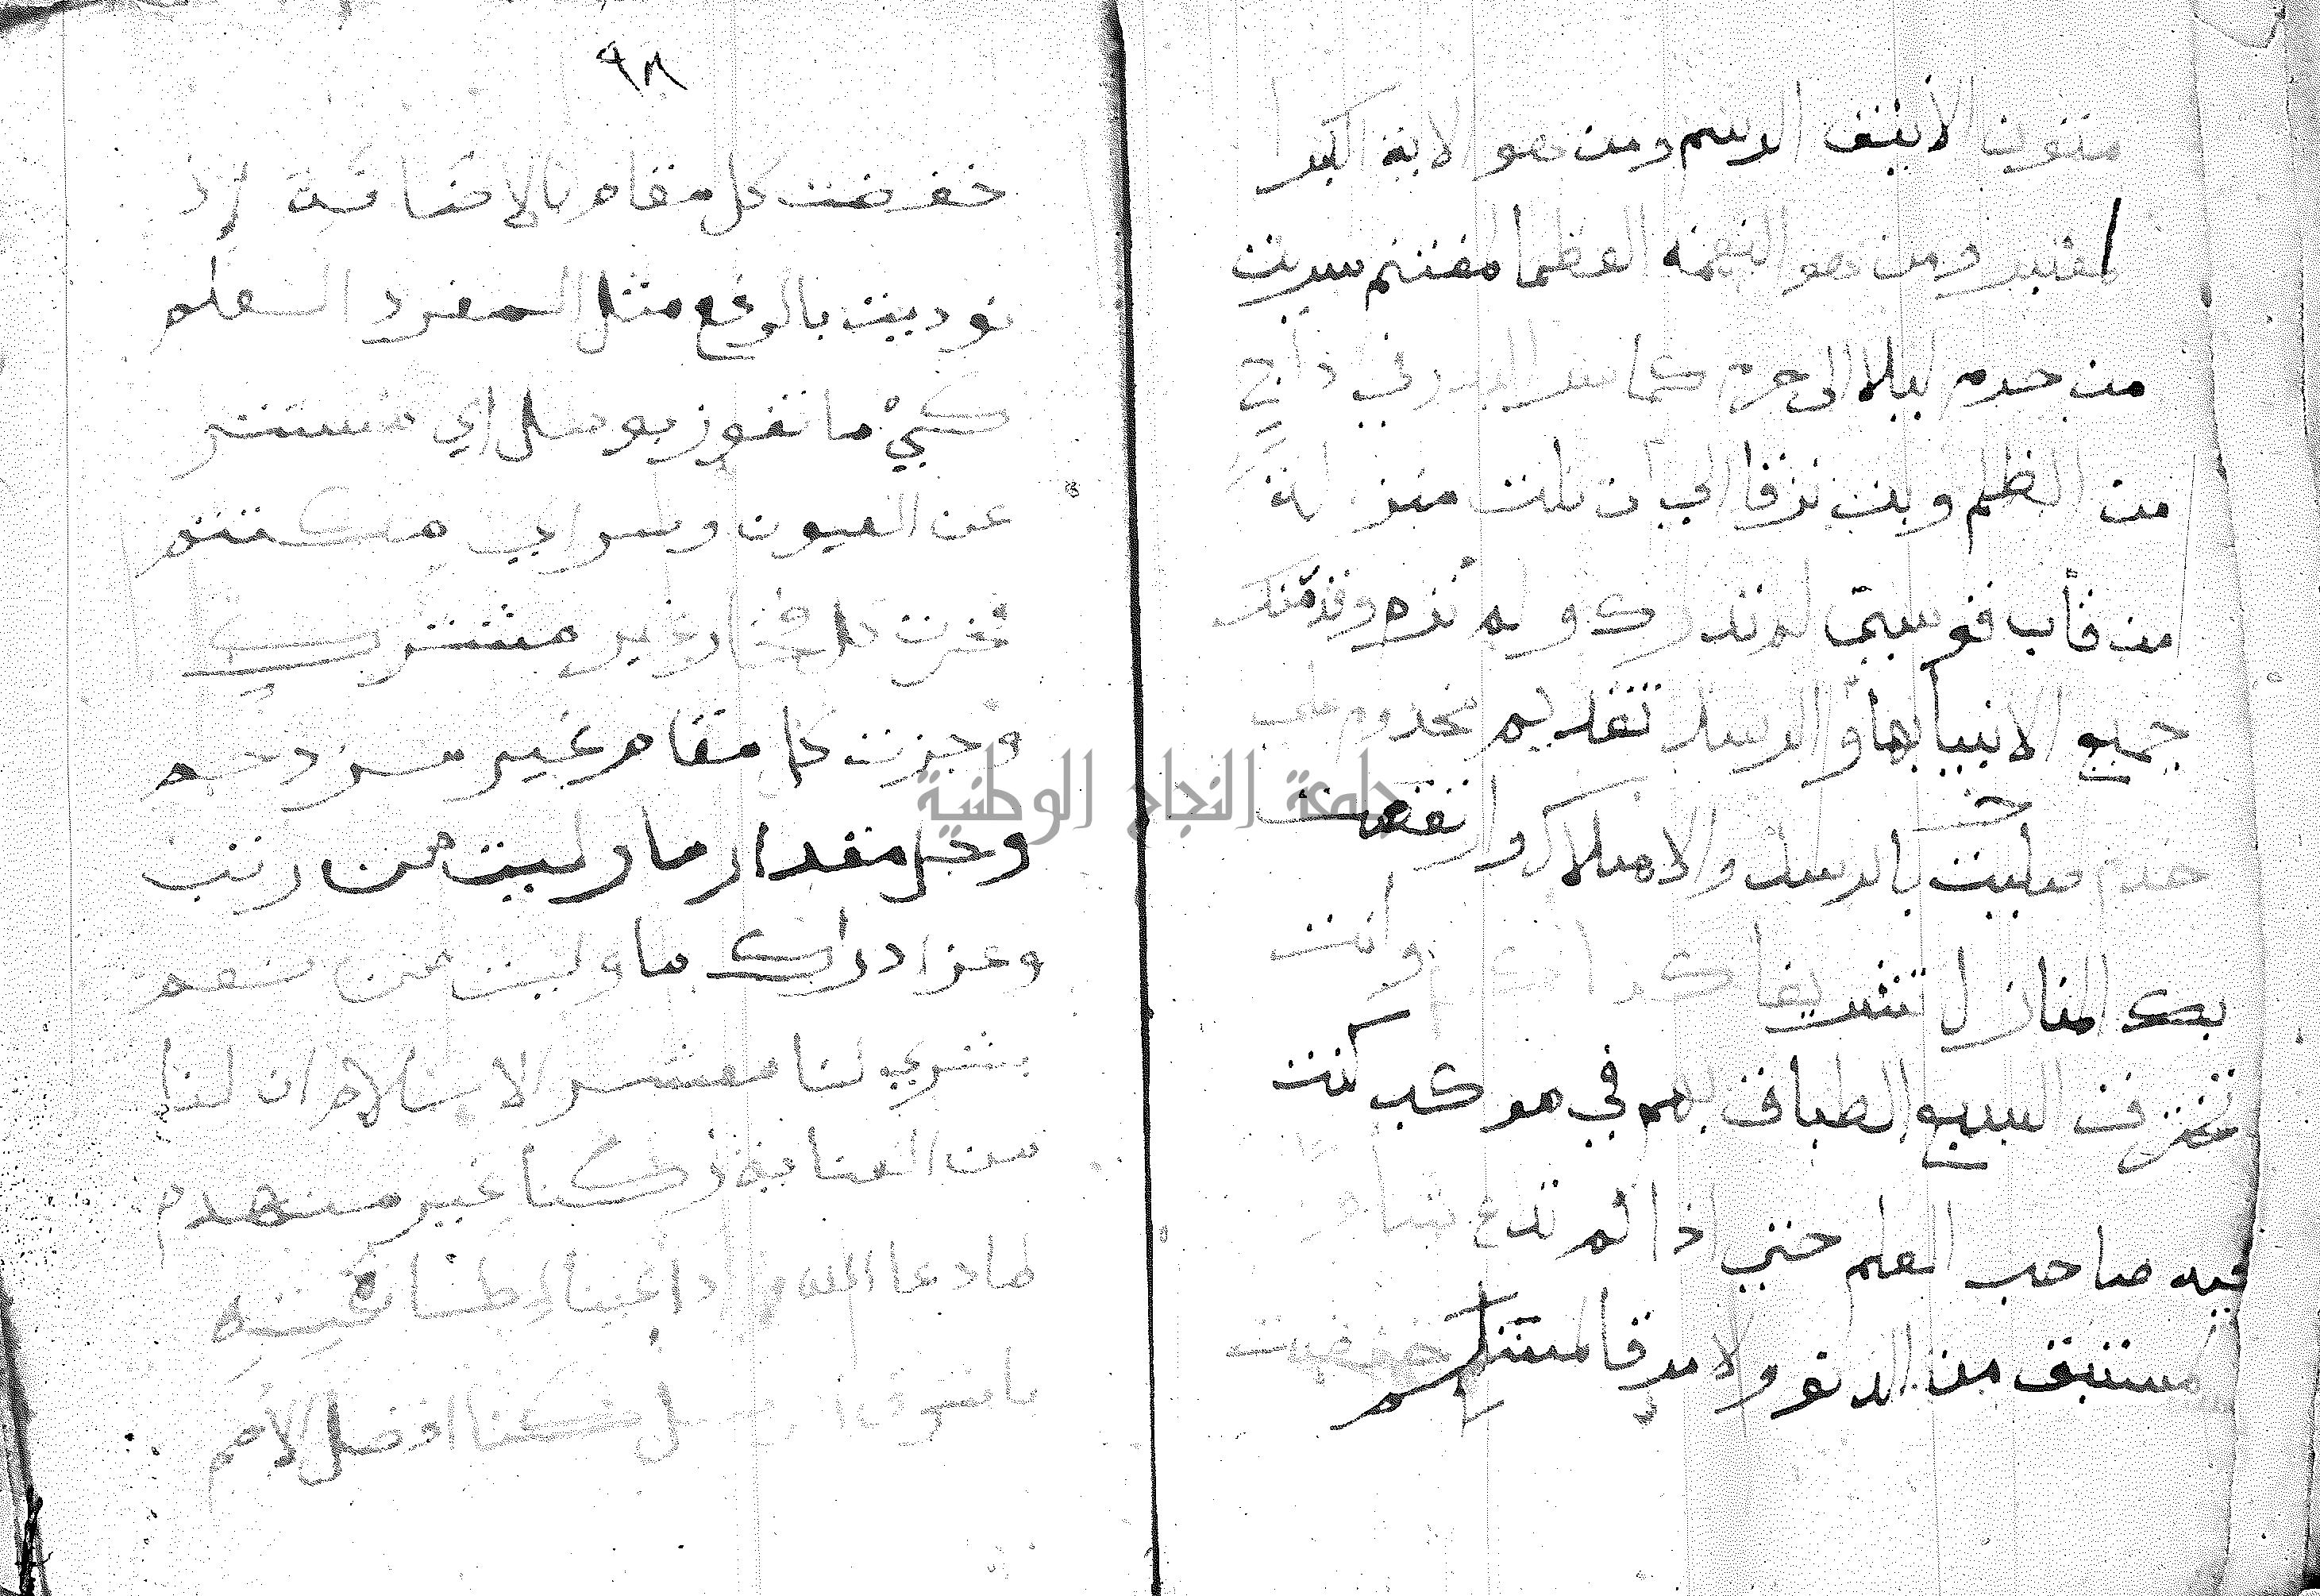 متون الاينق الرسم ومن هو الاية الكبرا
لمعتبر ومن هو النعمة العظما لمغتنم سريت
من حرم ليلا الى حرم كما سر البدر في داج
من الظلم وبت ترقا الي ان نلت منزلة
من قاب قوسين لم تدرك ولم ترم وقدمتك
جميع الانبيا بها والرسل تقديم مخدوم علي
خدم صليت بالرسل والاملاك وارتفعت
بك المنازل تشريفا وانت
تخترق السبع الطباق بهم في موكب كنت
فيه صاحب العلم حتي اذا لم تدع شاوا
لمستبق من الدنو ولا مرقا لمستنم خفضت
٩٨
خفضت كل مقام بالاضافة اذ
نوديت بالرفع مثل المفرد العلم
كي ما تفوز بوصل اي مستتر
عن العيون وسر اي مكتتم
فحزت كل فخار غير مشترك
وجزت كل مقام غير مزدحم
وجل مقدار ما وليت من رتب
وعز ادراك ما وليت من نعم
بشري لنا معشر الاسلام ان لنا
من العناية ركنا غير منهدم
لما دعا الله داعينا لطاعته
باكرم الرسل كنا افضل الامم
جامعة النجاح الوطنية